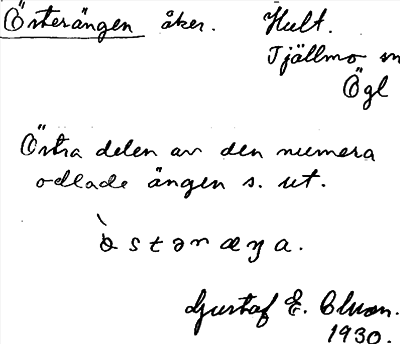 Österängen åker. Hult.
Tjällmo sn
Ögl
Östra delen av den numera
odlade ängen s. ut.
Gustaf E.
1930.